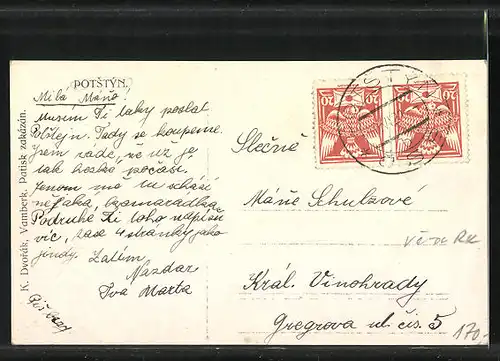 POTŠTÝN.
K. Dvořák, Vamberk. Patisk zakázán.
Milá Mánő!
Musím Ti taky poslat
Potštejn. Tady se koupeme.
Jsem ráda, že už je
tak hezké počasí.
Jenom mně tu schází
nějaká
Podruhé Ti toho napíšu
víc, zase 4 stránky jako
jindy. Zatím
Nazdar
Tva Marta
Piš brzy
Slečně
Máně Schulzové
Král. Vinohrady
Gregrova ul. čís. 5
20 20
170.-